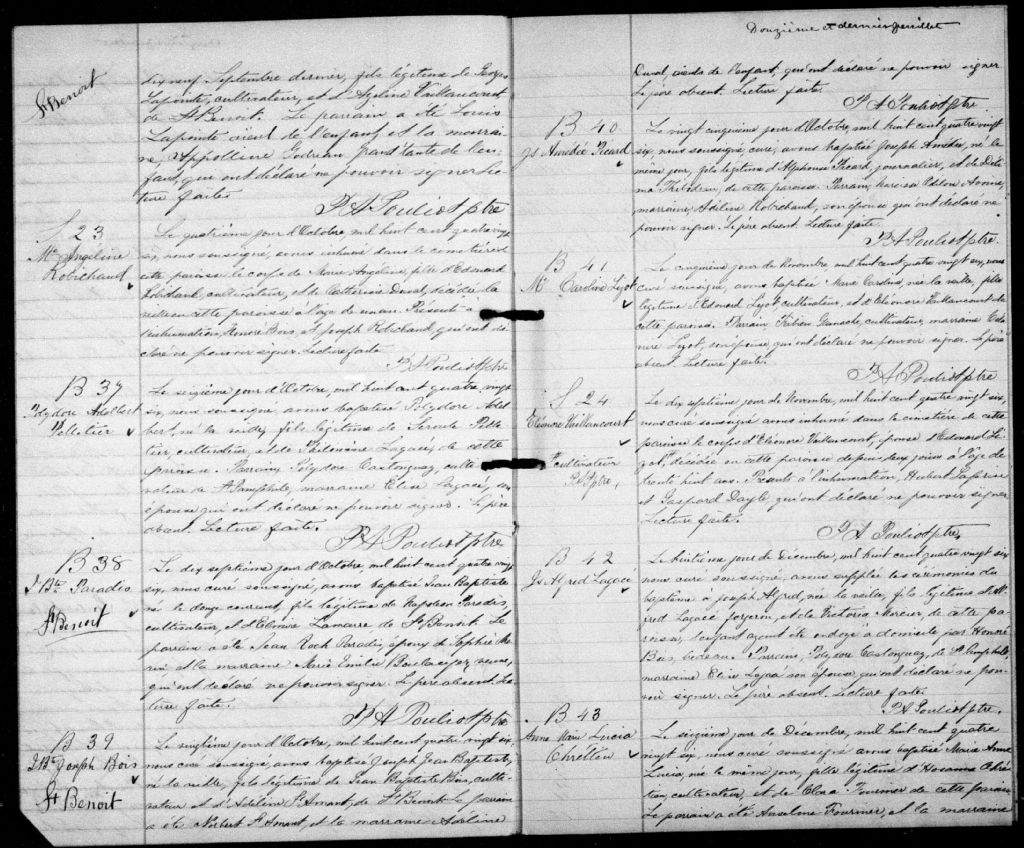 St Benoit
dix neuf Septembre dernier, fils légitime de Georges
Laponte, cultivateur, et d'Azeline Vaillancourt
de St Benoit. Le parrain a été Louis
Laponte aïeul de l'enfant, et la marrai-
ne, Appolline Godreau, grand'tante de l'en-
fant, qui ont déclaré ne pouvoir signer. Lec-
ture faite.
P A Pouliot Ptre
S 23
Me Angéline
Robichaud
Le quatrième jour d'Octobre, mil huit cent quatre vingt
six, nous soussigné, avons inhumé dans le cimetière de
cette paroisse le corps de Marie Angéline, fille d'Edouard
Robichaud, cultivateur, et de Catherine Duval, décédée la
veille en cette paroisse à l'âge de un an. Présents à
l'inhumation, Honoré Bois, et Joseph Robichaud, qui ont dé-
claré ne pouvoir signer. Lecture faite.
P A Pouliot Ptre
B 37
Polydore Adelbert
Pelletier
Le seizième jour d'Octobre, mil huit cent quatre vingt
six, nous soussigné, avons baptisé Polydore Adel
bert, né la veille, fils légitime de Pelle
tier, cultivateur, et de Philomène Lagacé, de cette
paroisse. Parrain, Polydore Castonguay, culti
vateur de St Pamphile, marraine Elise Lagacé, son
épouse qui ont déclaré ne pouvoir signer. Le père
absent. Lecture faite.
P A Pouliot Ptre
B 38
J Bte Paradis
St Benoit
Le dix septième jour d'Octobre, mil huit cent quatre vingt
six, nous curé soussigné, avons baptisé Jean Baptiste
né le douze courant, fils légitime de Napoléon Paradis,
cultivateur, et d'Eloïse Lamarre de St Benoit. Le
parrain a été Jean Roch Paradis, époux de Sophie Mo
rin, et la marraine Marie Emilie
qui ont déclaré ne pouvoir signer. Le père absent. Lec
ture faite.
P A Pouliot Ptre
B 39
J Bte Joseph Bois
St Benoit
Le vingtième jour d'Octobre, mil huit cent quatre vingt six,
nous curé soussigné, avons baptisé Joseph Jean Baptiste,
né la veille, fils légitime de Jean Baptiste Bois, culti-
vateur et d'Adeline St Amant, de St Benoit. Le parrain
a été Norbert St Amant, et la marraine Adeline
Douzième et dernier feuillet
Duval, aïeule de l'enfant, qui ont déclaré ne pouvoir signer
Le père absent. Lecture faite.
P A Pouliot Ptre
B 40
Js Amédée Picard
Le vingt cinquième jour d'Octobre, mil huit cent quatre vingt
six, nous soussigné curé, avons baptisé Joseph Amédée, né le
même jour, fils légitime d'Alphonse Picard, journalier, et de
ma Thibodeau, de cette paroisse. Parrain,
marraine, Adéline Robichaud, son épouse qui ont déclaré ne
pouvoir signer. Le père absent. Lecture faite.
P A Pouliot Ptre
B 41
Me Caroline Lizot
Le cinquième jour de Novembre, mil huit cent quatre vingt six, nous
curé soussigné, avons baptisé Marie Caroline, née la veille, fille
légitime d'Edouard Lizot cultivateur, et d'Eléonore Vaillancourt de
cette paroisse. Parrain, Fabien Gamache, cultivateur, marraine
Lizot, son épouse, qui ont déclaré ne pouvoir signer. Le père
absent. Lecture faite.
P A Pouliot Ptre
S 24
Eléonore Vaillancourt
cultivateur
P A P Ptre,
Le dix septième jour de Novembre, mil huit cent quatre vingt six,
nous curé soussigné avons inhumé dans le cimetière de cette
paroisse le corps d'Eléonore Vaillancourt, épouse d'Edouard Li-
zot, décédée en cette paroisse depuis deux jours à l'âge de
trente huit ans. Présents à l'inhumation, Hubert
et Gaspard Dayle, qui ont déclaré ne pouvoir signer
Lecture faite.
P A Pouliot Ptre,
B 42
Js Alfred Lagacé
Le huitième jour de Décembre, mil huit cent quatre vingt six
nous curé soussigné, avons suppléé les cérémonies du
baptême à Joseph Alfred, né la veille, fils légitime d'Al
fred Lagacé forgeron, et de Victoria Mercier, de cette pa-
roisse, l'enfant ayant été ondoyé à domicile par Honoré
Bois, bedeau. Parrain, Polydore Castonguay, de St Pamphile,
marraine Elise Lagacé son épouse qui ont déclaré ne pou-
voir signer. Le père absent. Lecture faite.
P A Pouliot Ptre,
B 43
Anna Marie Lucia
Chrétien
Le seizième jour de Décembre, mil huit cent quatre
vingt six, nous curé soussigné avons baptisé Marie Anna
Lucia, née le même jour, fille légitime d' Chré
tien, cultivateur, et de Clara Fournier de cette paroisse
Le parrain a été Anselme Fournier, et la marraine